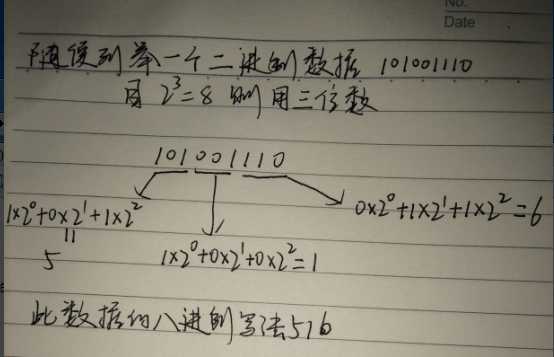 No.
Date
随便列举一个二进制数据 101001110
因 2³=8 则用三位数
101001110
1×2⁰+0×2¹+1×2²
0×2⁰+1×2¹+1×2²=6
=
5
1×2⁰+0×2¹+0×2²=1
此数据的八进制写法516